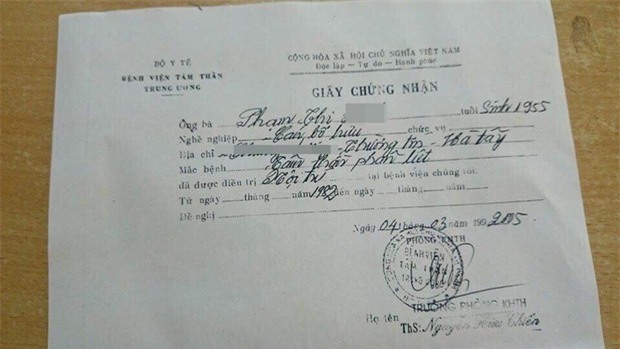 BỘ Y TẾ
BỆNH VIỆN TÂM THẦN
TRUNG ƯƠNG
CỘNG HÒA XÃ HỘI CHỦ NGHĨA VIỆT NAM
Độc lập - Tự do - Hạnh phúc
GIẤY CHỨNG NHẬN
Ông bà Phạm Thị tuổi Sinh 1955
Nghề nghiệp Cán bộ hưu chức vụ
Địa chỉ - Thường tín - Hà tây
Mắc bệnh Tâm thần phân liệt
đã được điều trị Nội trú tại bệnh viện chúng tôi.
Từ ngày tháng năm 1982 đến ngày tháng năm
Đề nghị
Ngày 04 tháng 03 năm 2005
PHÒNG KHTH
BỆNH VIỆN
TÂM THẦN
TRUNG ƯƠNG
TRƯỞNG PHÒNG KHTH
Họ tên
ThS: Nguyễn Hữu Chiến